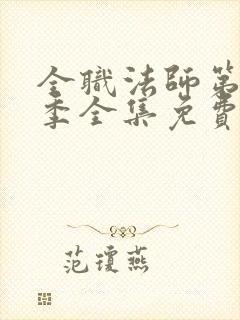 全職法師第
季全集免費
范瓊燕